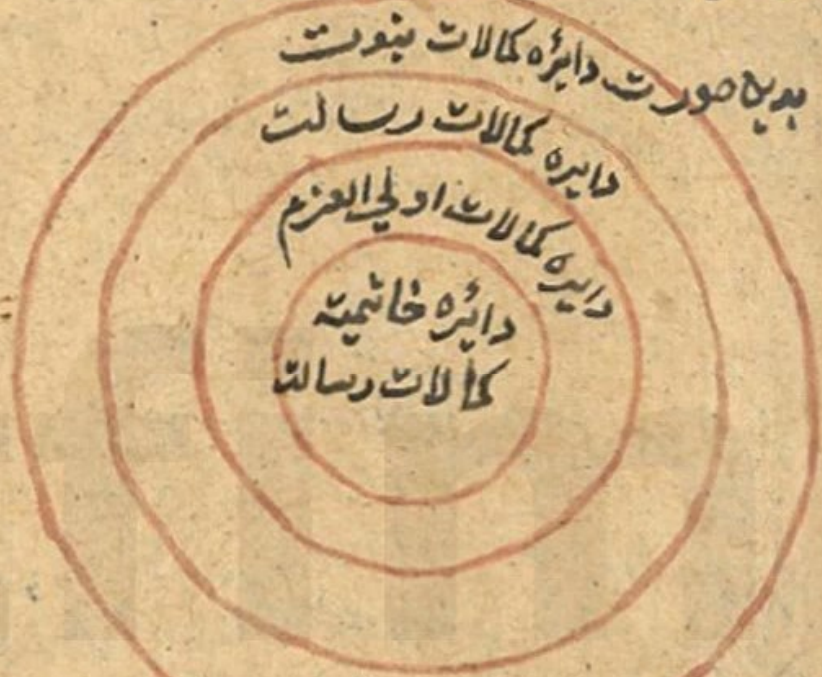 بدین صورت دایٔره کمالات نبوت
دایره کمالات رسالت
دایره کمالات اولی العزم
دایٔره خاتمیة
کمالات رسالت